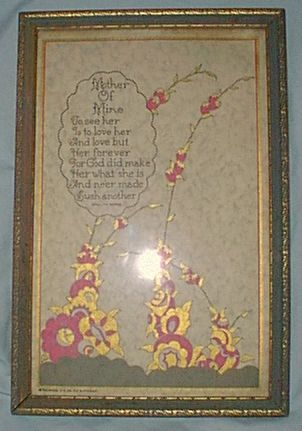 Mother
Of
Mine
To see her
Is to love her
And love but
Her forever
For God did make
Her what she is
And ne'er made
Such another